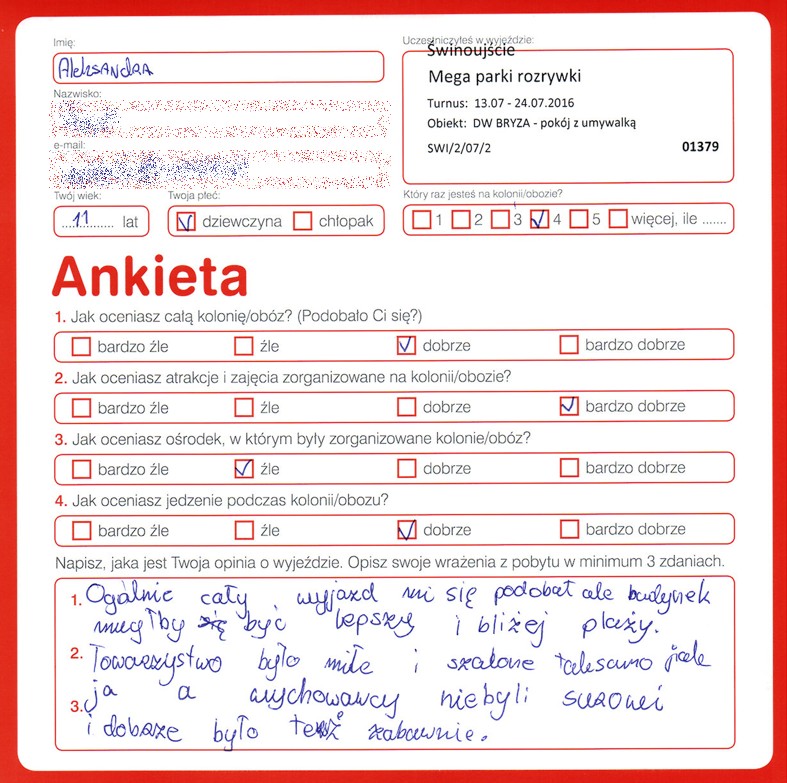 Imię:
Aleksandra
Nazwisko:
e-mail:
Twój wiek:
11 lat
Twoja płeć:
dziewczyna chłopak
Uczestniczyłeś w wyjeździe:
Świnoujście
Mega parki rozrywki
Turnus: 13.07 - 24.07.2016
Obiekt: DW BRYZA - pokój z umywalką
SWI/2/07/2 01379
Który raz jesteś na kolonii/obozie?
1 2 3 4 5 więcej, ile .......
Ankieta
1. Jak oceniasz całą kolonię/obóz? (Podobało Ci się?)
bardzo źle źle dobrze bardzo dobrze
2. Jak oceniasz atrakcje i zajęcia zorganizowane na kolonii/obozie?
bardzo źle źle dobrze bardzo dobrze
3. Jak oceniasz ośrodek, w którym były zorganizowane kolonie/obóz?
bardzo źle źle dobrze bardzo dobrze
4. Jak oceniasz jedzenie podczas kolonii/obozu?
bardzo źle źle dobrze bardzo dobrze
Napisz, jaka jest Twoja opinia o wyjeździe. Opisz swoje wrażenia z pobytu w minimum 3 zdaniach.
1. Ogólnie cały wyjazd mi się podobał ale budynek
mugłby być lepszy i bliżej plaży.
2. Towarzystwo było miłe i szalone taksamo jak
ja a wychowawcy niebyli surowi
3. i dobrze było też zabawnie.